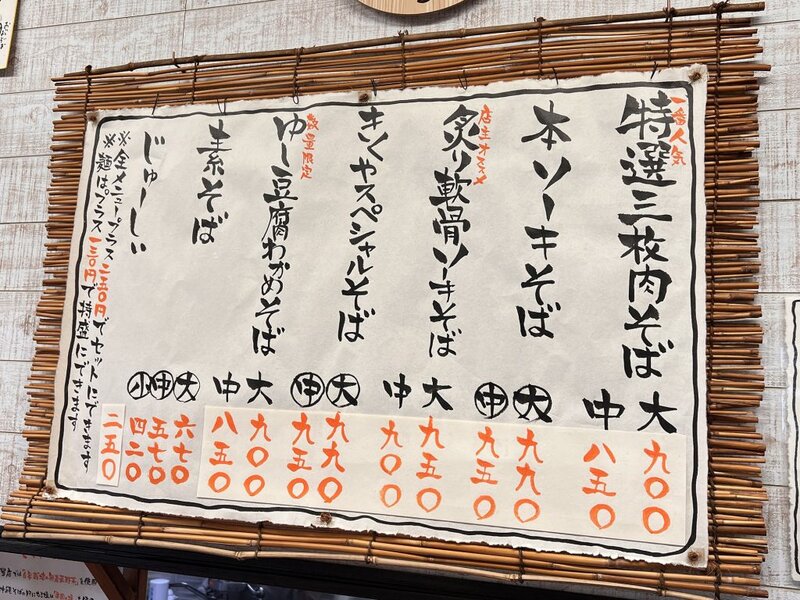 一番人気
特選三枚肉そば
大 九〇〇
中 八五〇
本ソーキそば
大 九九〇
中 九五〇
店主オススメ
炙り軟骨ソーキそば
大 九五〇
中 九〇〇
きくやスペシャルそば
大 九九〇
中 九五〇
数量限定
ゆし豆腐わかめそば
大 九〇〇
中 八五〇
素そば
大 六七〇
中 五七〇
小 四二〇
じゅーしぃ
二五〇
※全メニュープラス二五〇円でセットにできます
※麺はプラス一三〇円で特盛にできます